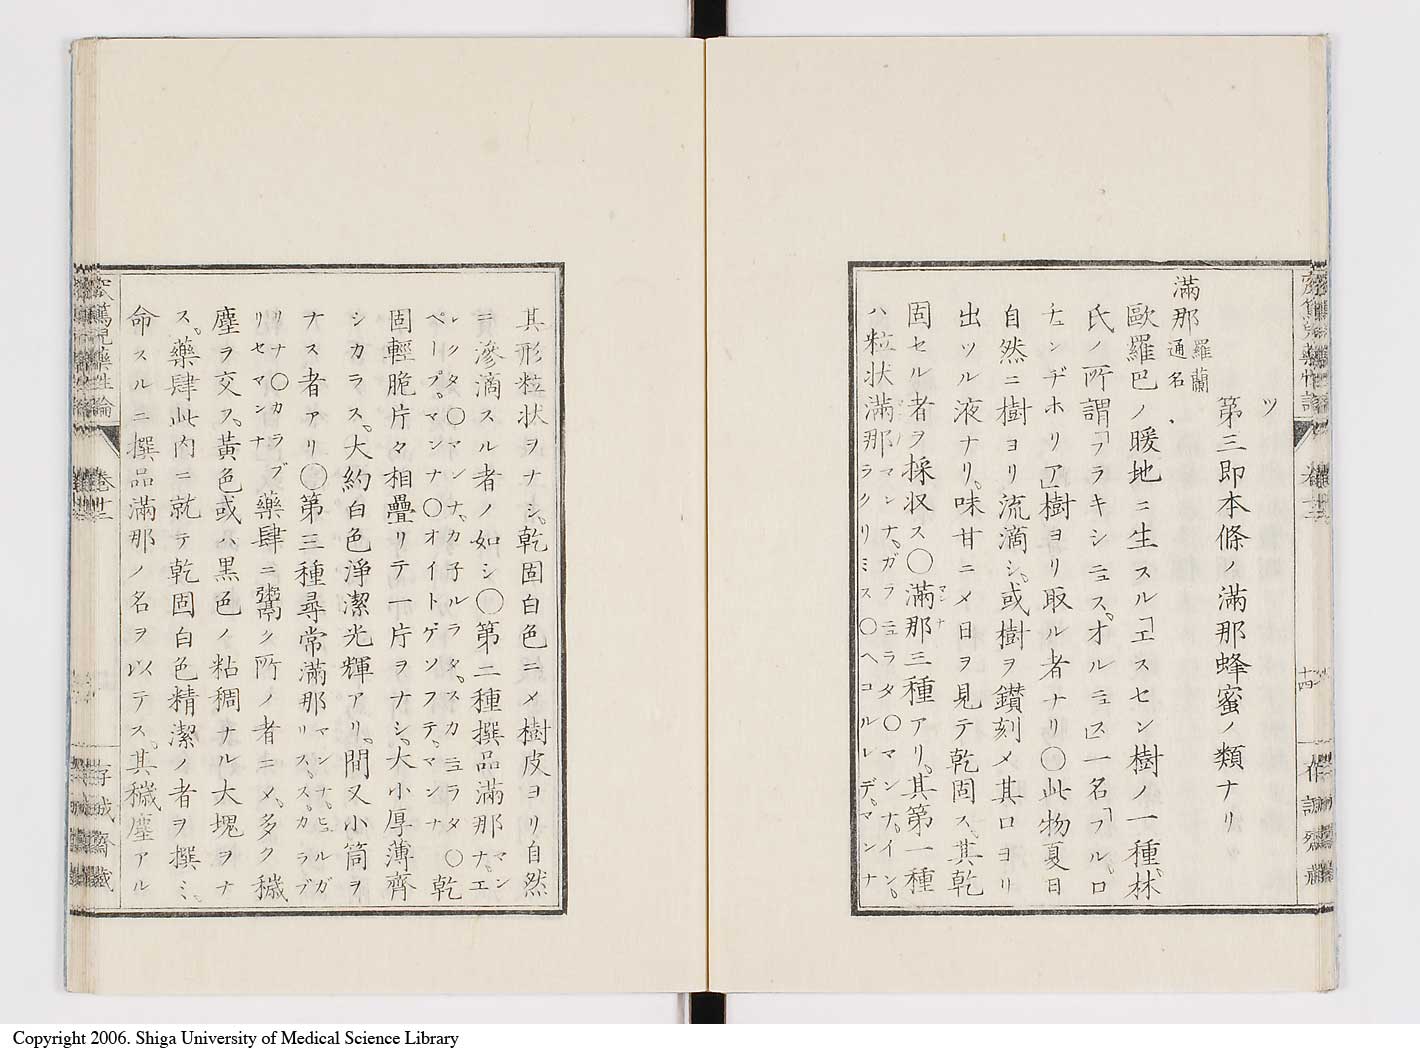 ツ
第三即本條ノ滿那蜂蜜ノ類ナリ
滿那 羅蘭通名
歐羅巴ノ暖地ニ生スル「エスセン樹ノ一種、林
氏ノ所謂「フラキシニュス、オルニュス一名「フル、ロ
チュンヂホリア」樹ヨリ取ル者ナリ〇此物夏日
自然ニ樹ヨリ流滴シ、或樹ヲ鑚刻メ其口ヨリ
出ツル液ナリ、味甘ニメ日ヲ見テ乾固ス、其乾
固セル者ヲ採收ス〇滿那三種アリ、其第一種
ハ粒状滿那 マンナ、ガラニュラタ〇マンナ、イン、ラクリミス〇ヘコルレデ、マンナ
其形粒状ヲナシ、乾固白色ニメ樹皮ヨリ自然
ニ滲滴スル者ノ如シ〇第二種撰品滿那 マンナ、エレクタ〇マンナ、カ子ルラタ、スカニュラタ〇
ペープ、マンナ〇オイトゲソフテ、マンナ 乾
固輕脆片々相疊リテ一片ヲナシ、大小厚薄齊
シカラス、大約白色淨潔光輝アリ、間又小筒ヲ
ナス者アリ〇第三種尋常滿那 マンナ、ヒュルガリス、スカラブ
リナ〇カラブリセマンナ 藥肆ニ鬻ク所ノ者ニメ、多ク穢
塵ヲ交フ、黄色或ハ黒色ノ粘稠ナル大塊ヲナ
ス、藥肆此内ニ就テ乾固白色精潔ノ者ヲ撰ミ、
命スルニ撰品滿那ノ名ヲ以テス、其穢塵アル
萬兒藥性論
卷廿二
十四
Copyright 2006. Shiga University of Medical Science Library